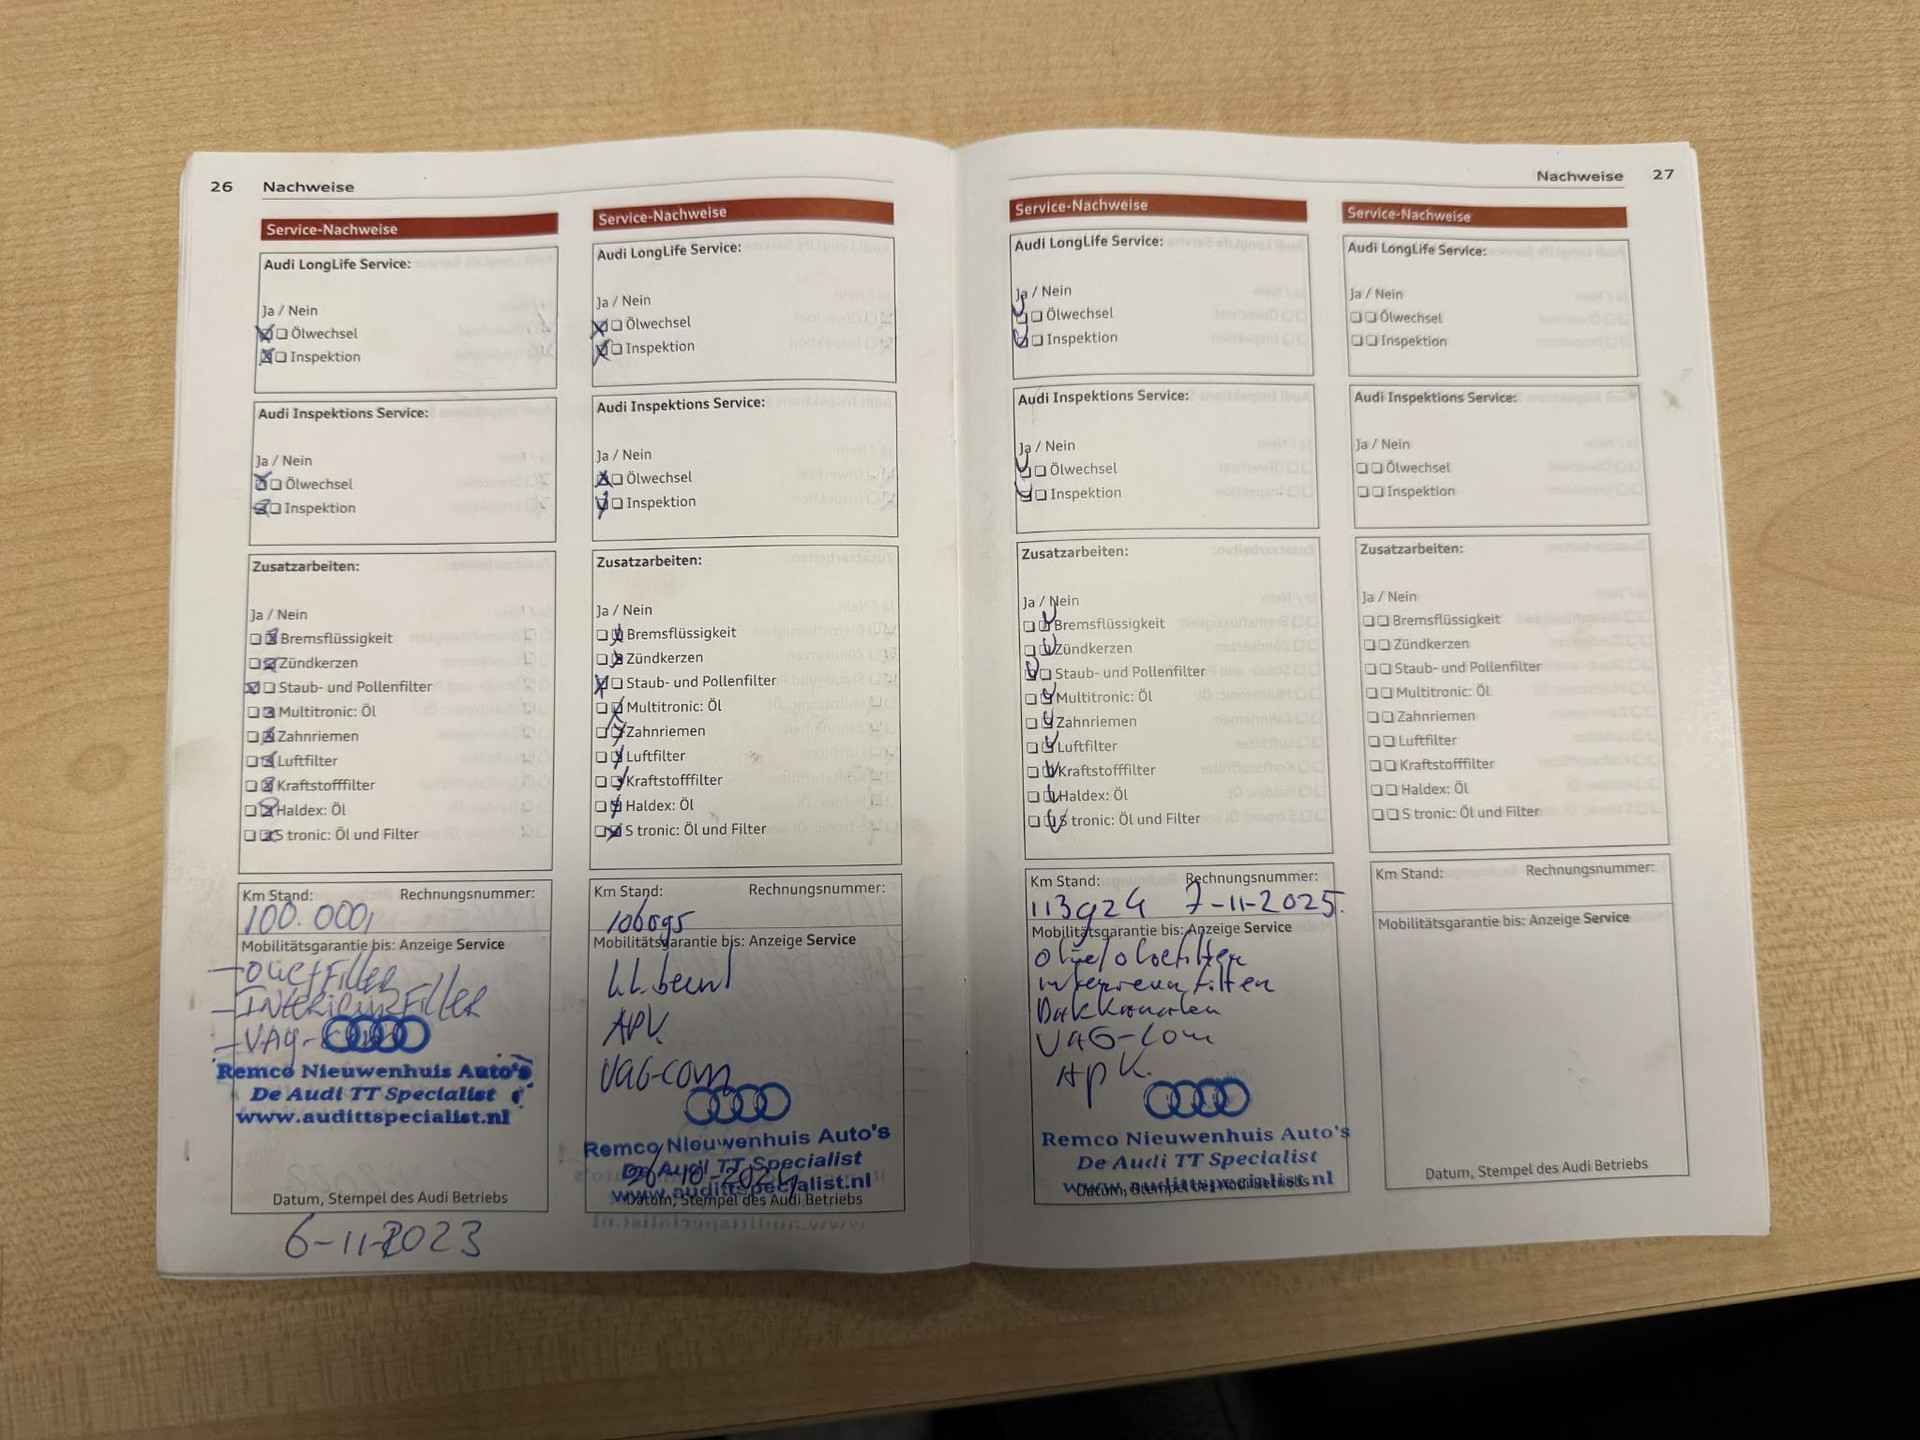 26 Nachweise
Service-Nachweise
Audi LongLife Service:
Ja / Nein
Ölwechsel
Inspektion
Audi Inspektions Service:
Ja / Nein
Ölwechsel
Inspektion
Zusatzarbeiten:
Ja / Nein
Bremsflüssigkeit
Zündkerzen
Staub- und Pollenfilter
Multitronic: Öl
Zahnriemen
Luftfilter
Kraftstofffilter
Haldex: Öl
S tronic: Öl und Filter
Km Stand: Rechnungsnummer:
100.000,
Mobilitätsgarantie bis: Anzeige Service
- INTERIEURFILTER
- VAG-COM
Remco Nieuwenhuis Auto's
De Audi TT Specialist
www.audittspecialist.nl
Datum, Stempel des Audi Betriebs
6-11-2023
Service-Nachweise
Audi LongLife Service:
Ja / Nein
Ölwechsel
Inspektion
Audi Inspektions Service:
Ja / Nein
Ölwechsel
Inspektion
Zusatzarbeiten:
Ja / Nein
Bremsflüssigkeit
Zündkerzen
Staub- und Pollenfilter
Multitronic: Öl
Zahnriemen
Luftfilter
Kraftstofffilter
Haldex: Öl
S tronic: Öl und Filter
Km Stand: Rechnungsnummer:
Mobilitätsgarantie bis: Anzeige Service
VAG-COM
Remco Nieuwenhuis Auto's
De Audi TT Specialist
26-10-2024
www.audittspecialist.nl
Datum, Stempel des Audi Betriebs
Nachweise 27
Service-Nachweise
Audi LongLife Service:
Ja / Nein
Ölwechsel
Inspektion
Audi Inspektions Service:
Ja / Nein
Ölwechsel
Inspektion
Zusatzarbeiten:
Ja / Nein
Bremsflüssigkeit
Zündkerzen
Staub- und Pollenfilter
Multitronic: Öl
Zahnriemen
Luftfilter
Kraftstofffilter
Haldex: Öl
S tronic: Öl und Filter
Km Stand: Rechnungsnummer:
113924 7-11-2025
Mobilitätsgarantie bis: Anzeige Service
olie/oliefilter
interieurfilter
Dakkanalen
VAG-Com
APK.
Remco Nieuwenhuis Auto's
De Audi TT Specialist
www.audittspecialist.nl
Datum, Stempel des Audi Betriebs
Service-Nachweise
Audi LongLife Service:
Ja / Nein
Ölwechsel
Inspektion
Audi Inspektions Service:
Ja / Nein
Ölwechsel
Inspektion
Zusatzarbeiten:
Ja / Nein
Bremsflüssigkeit
Zündkerzen
Staub- und Pollenfilter
Multitronic: Öl
Zahnriemen
Luftfilter
Kraftstofffilter
Haldex: Öl
S tronic: Öl und Filter
Km Stand: Rechnungsnummer:
Mobilitätsgarantie bis: Anzeige Service
Datum, Stempel des Audi Betriebs